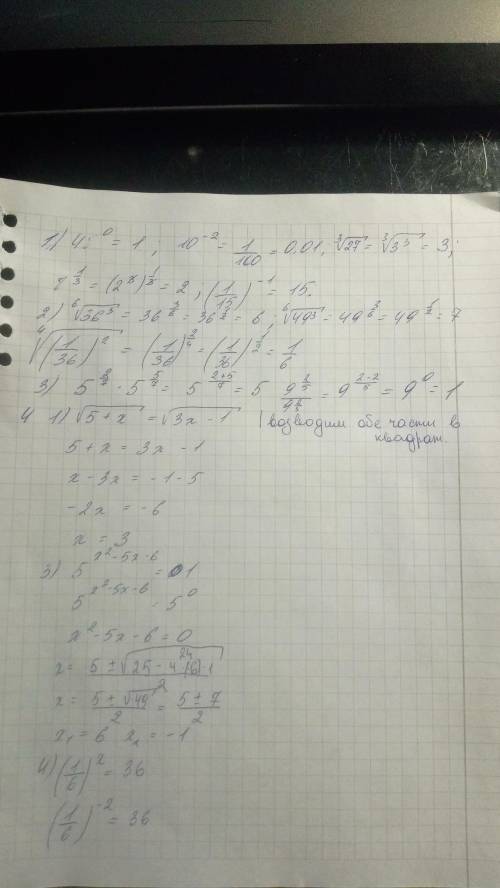 1) 4^0 = 1; 10^{-2} = 1/100 = 0,01, ∛27 = ∛3^3 = 3;
8^{1/3} = (2^3)^{1/3} = 2, (1/15)^{-1} = 15.
2) ⁶√36^3 = 36^{3/6} = 36^{1/2} = 6; ⁶√49^3 = 49^{3/6} = 49^{1/2} = 7
⁴√(1/36)^2 = (1/36)^{2/4} = (1/36)^{1/2} = 1/6
3) 5^{2/7} · 5^{5/7} = 5^{(2+5)/7} = 5 9^{2/5}/9^{2/5} = 9^{(2-2)/5} = 9^0 = 1
4 1) √(5+x) = √(3x-1) | возводим обе части в
квадрат.
5 + x = 3x - 1
x - 3x = -1 - 5
-2x = -6
x = 3
3) 5^{x^2-5x-6} = 1
5^{x^2-5x-6} = 5^0
x^2 - 5x - 6 = 0
x = 5 ± √(25 - 4(6)·1) 24
2
x = (5 ± √49)/2 = (5 ± 7)/2
x₁ = 6 x₁ = -1
4) (1/6)^x = 36
(1/6)^{-2} = 36